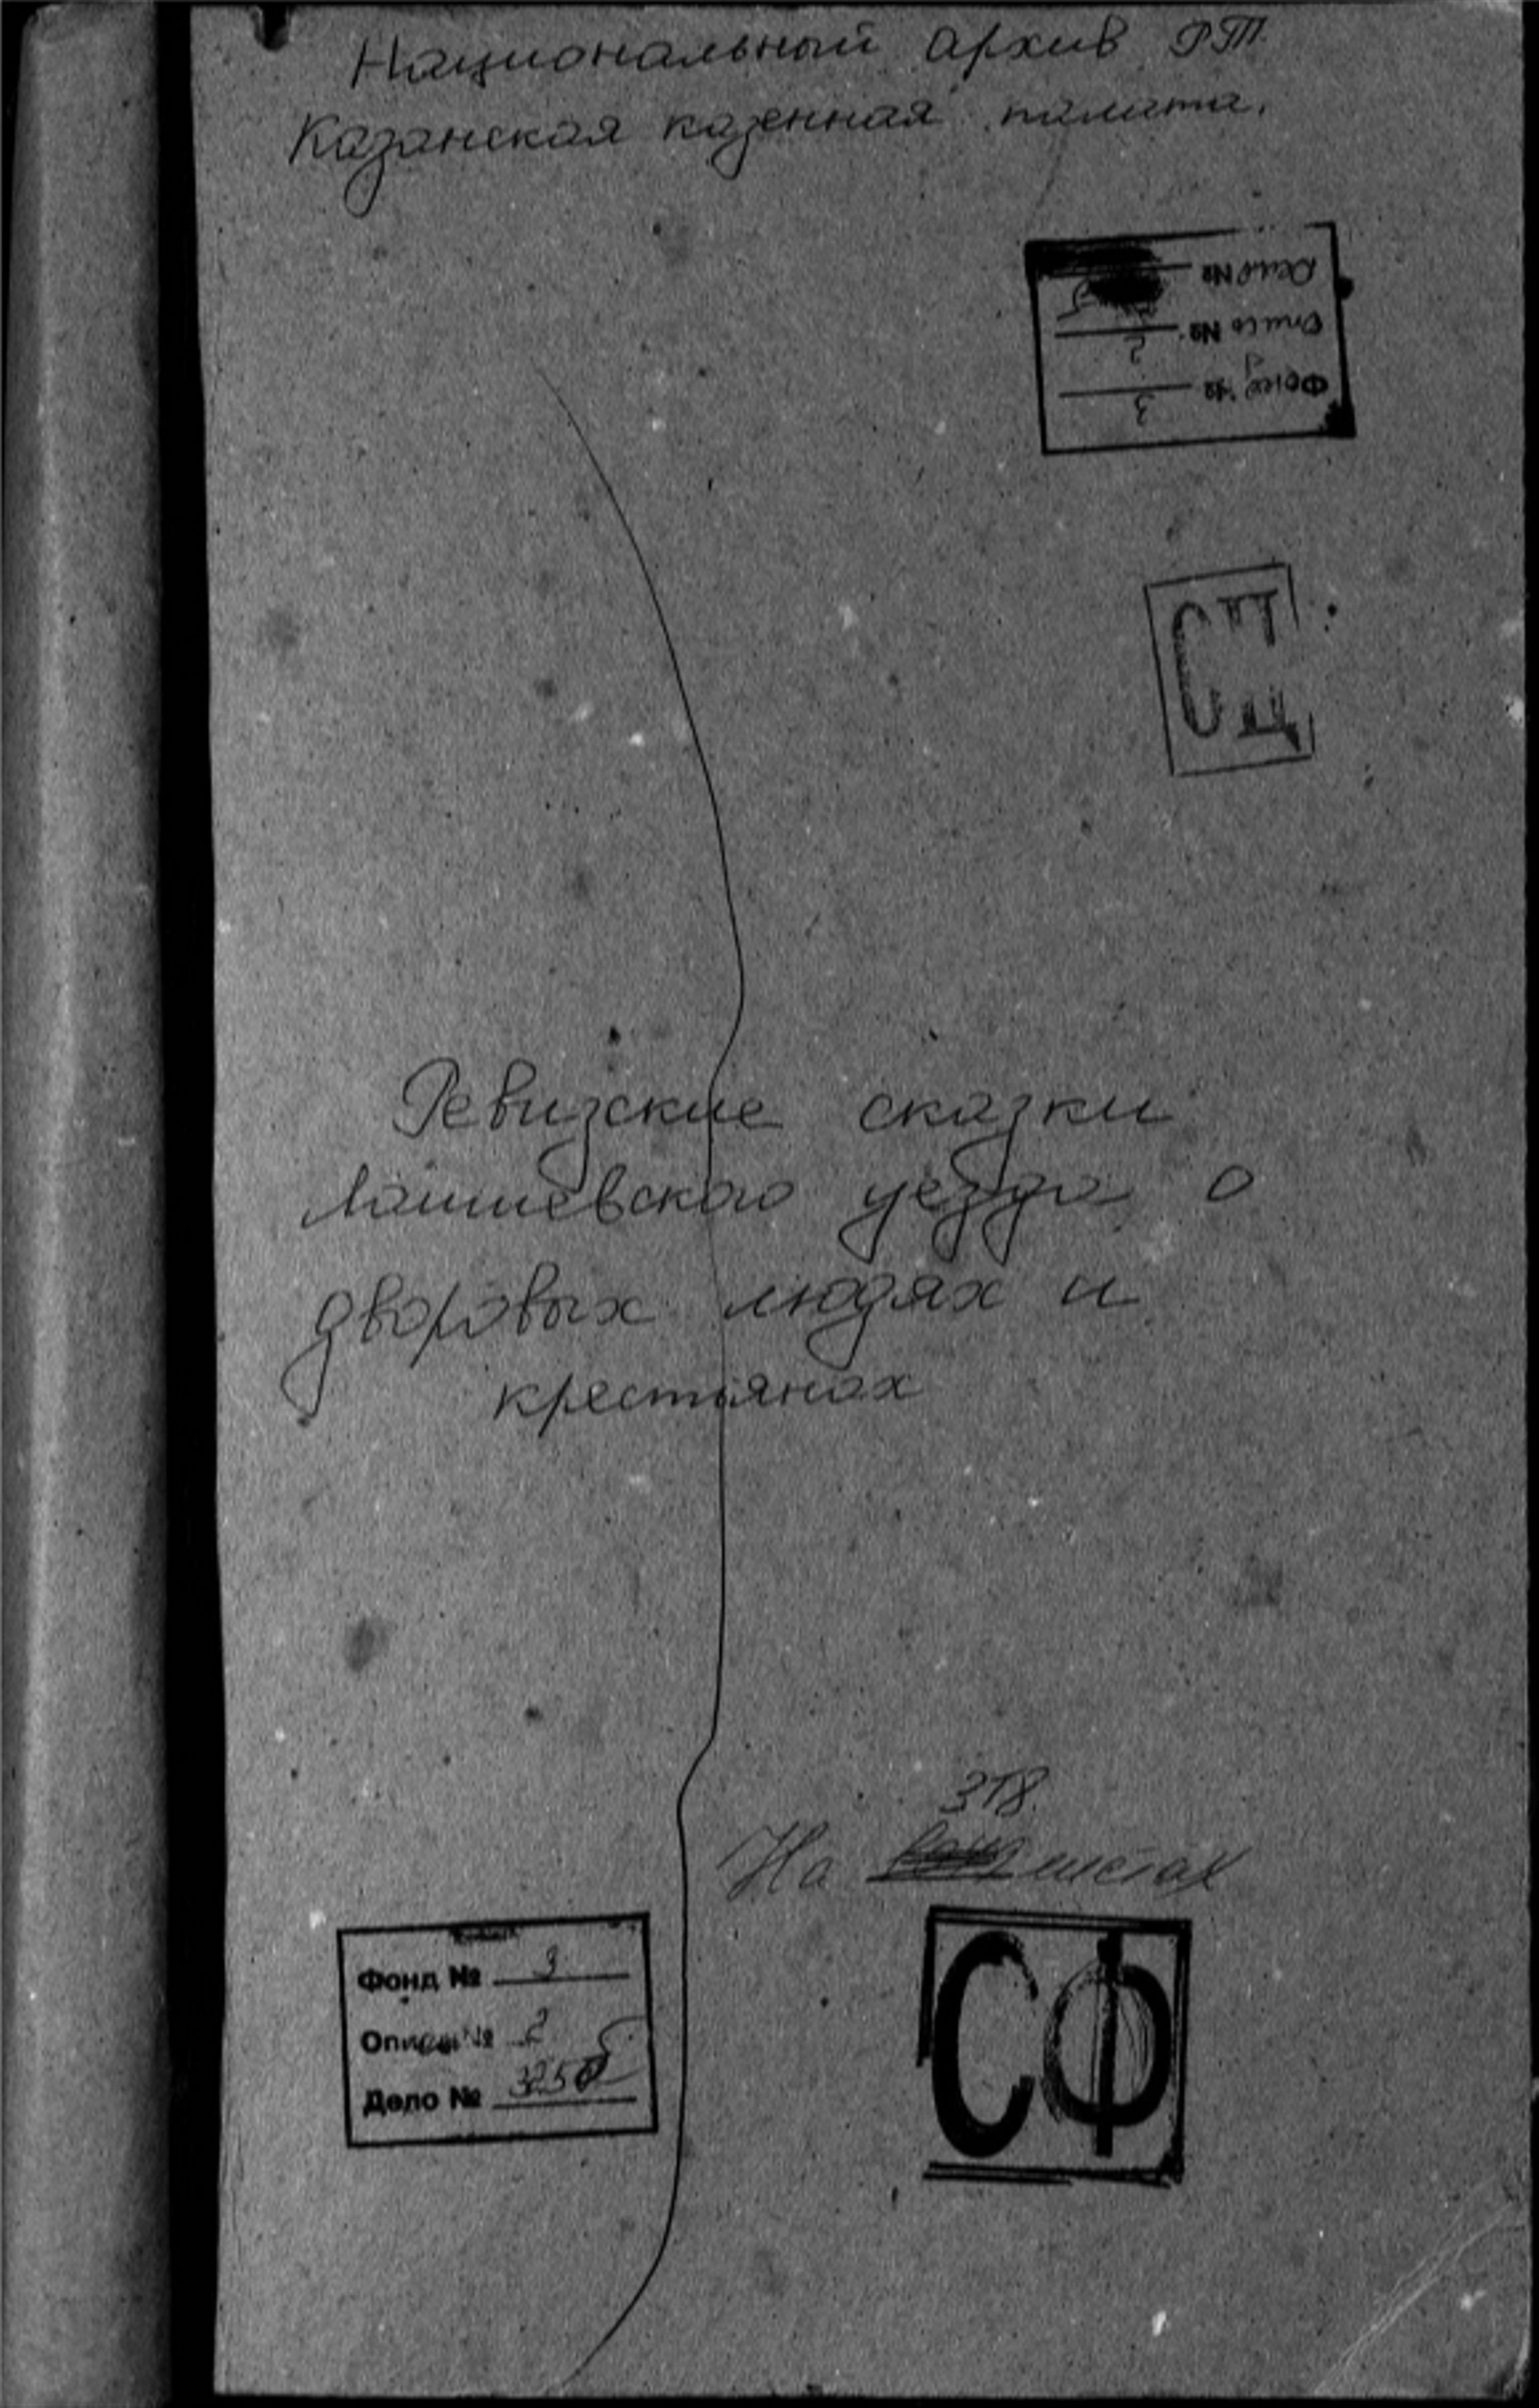 Национальный архив РТ.
Казанская казенная палата.
Дело №
Опись № 2
Фонд № 3
СД
Ревизские сказки
Лаишевского уезда о
дворовых людях и
крестьянах
На листах
Фонд № 3
Опись № 2
Дело №
СФ